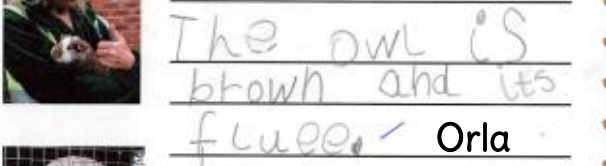 The owl is
brown and its
fluee. Orla